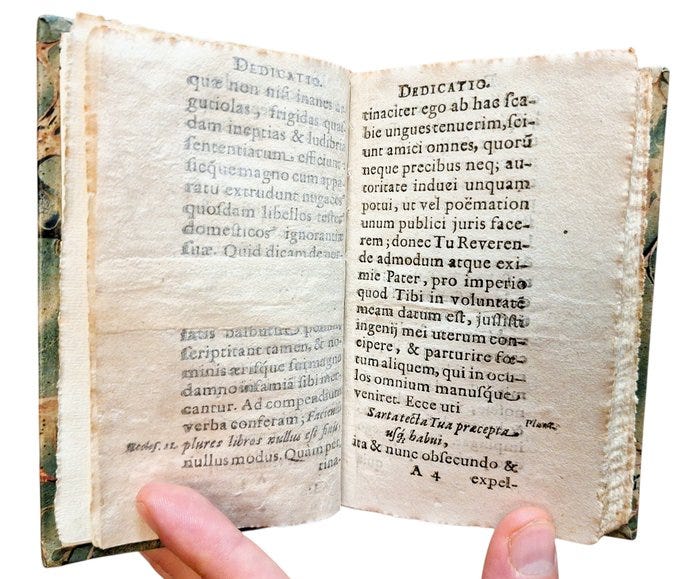 DEDICATIO.
quæ non nisi inanes ar-
gutiolas, frigidas quas-
dam ineptias & ludibria
sententiarum efficiunt:
sicque magno cum appa-
ratu extrudunt nugaces
quosdam libellos testes
domesticos ignorantiæ
suæ. Quid dicam de
scriptitant tamen, & no-
minis ærisque sui magno
damno infamiã sibi mer-
cantur. Ad compendium
verba conferam; Faciendi
Eccles. 12. plures libros nullus est finis
nullus modus. Quàm per-
tina-
DEDICATIO.
tinaciter ego ab hac sca-
bie ungues tenuerim, sci-
unt amici omnes, quorũ
neque precibus neq; au-
toritate induci unquam
potui, ut vel poëmation
unum publici juris face-
rem; donec Tu Reveren-
de admodum atque exi-
mie Pater, pro imperio
quod Tibi in voluntatẽ
meam datum est, jussisti
ingenij mei uterum con-
cipere, & parturire fœ-
tum aliquem, qui in ocu-
los omnium manusque
veniret. Ecce uti
Sarta tecta Tua præcepta Plaut.
usq; habui,
ita & nunc obsecundo &
A 4 expel-